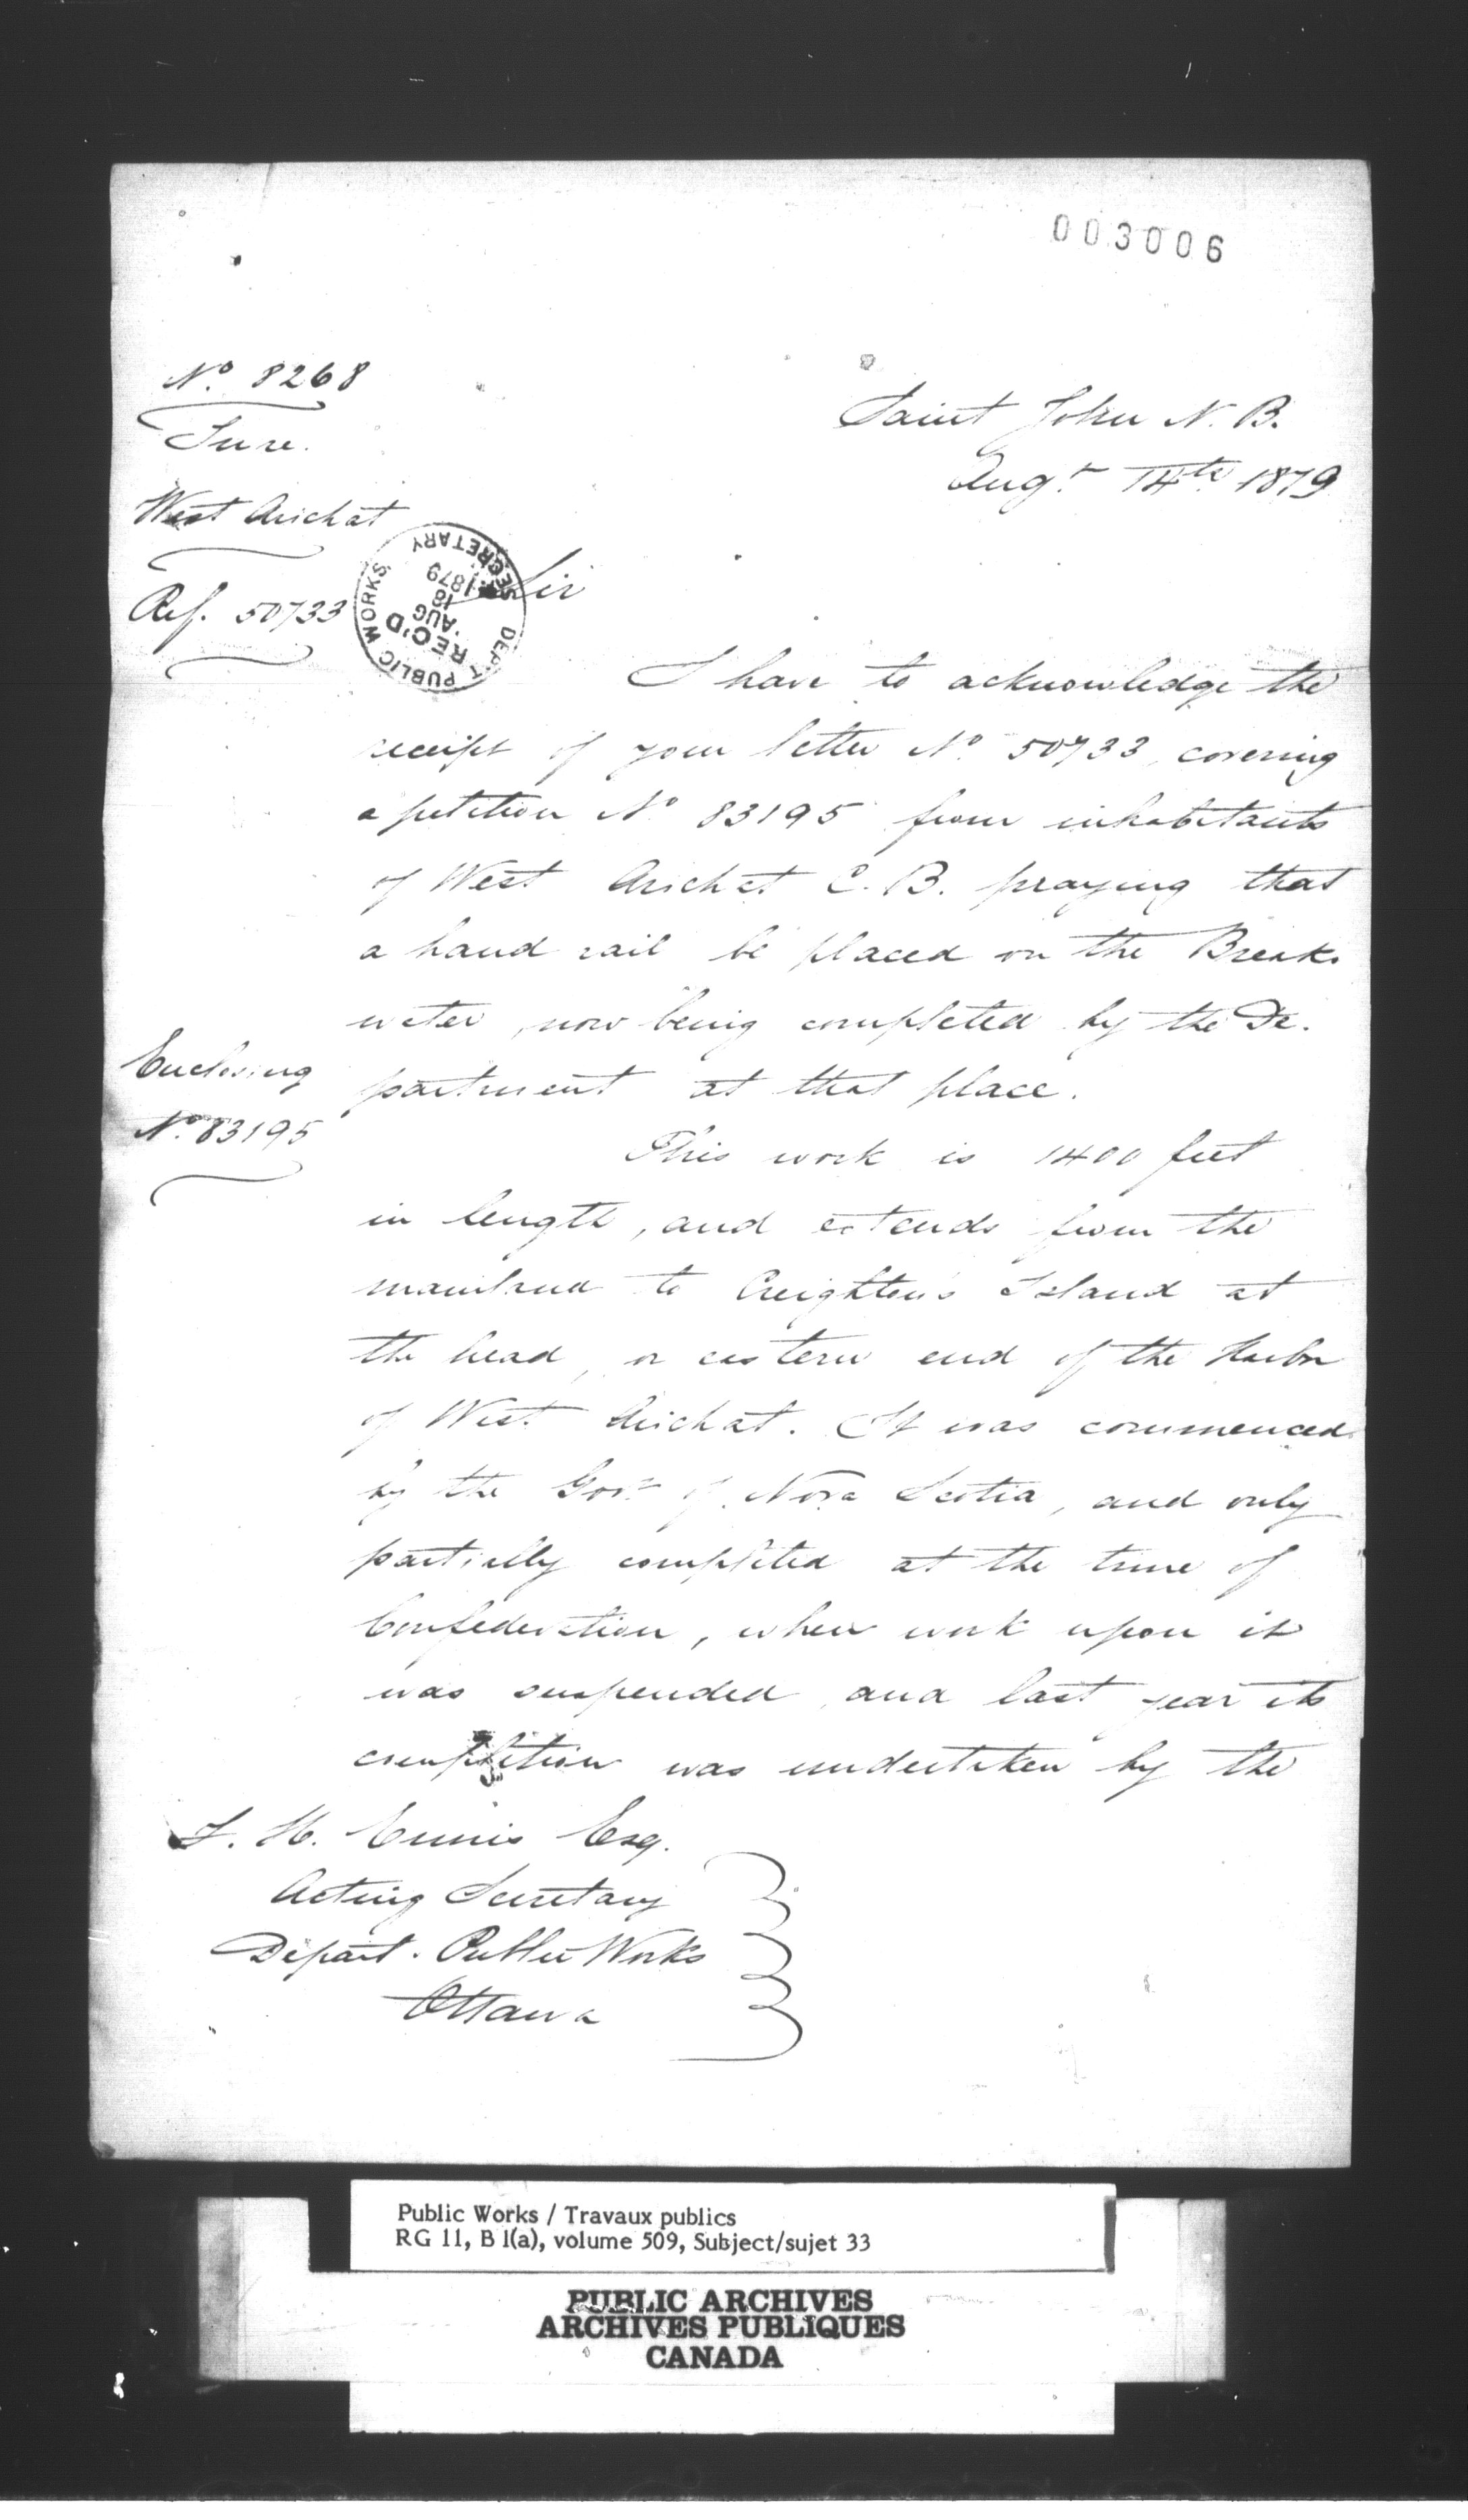 003006
No. 8268
West Arichat
Ref. 50733
Saint John N. B.
Augt. 14th 1879
DEPT PUBLIC WORKS
REC'D
AUG
18
1879
SECRETARY
Sir
I have to acknowledge the
receipt of your letter No. 50733, covering
a petition No 83195 from inhabitants
of West Arichat C. B. praying that
a hand rail be placed on the Break-
water, now being completed by the De-
partment at that place.
Enclosing
No. 83195
This work is 1400 feet
in length, and extends from the
mainland to Creighton's Island at
the head, or eastern end of the Harbor
of West Arichat. It was commenced
by the Govt of Nova Scotia, and only
partially completed at the time of
Confederation, when work upon it
was suspended, and last year its
completion was undertaken by the
Ennis Esq.
Acting Secretary
Depart. Public Works
Ottawa
Public Works / Travaux publics
RG 11, B 1(a), volume 509, Subject/sujet 33
PUBLIC ARCHIVES
ARCHIVES PUBLIQUES
CANADA